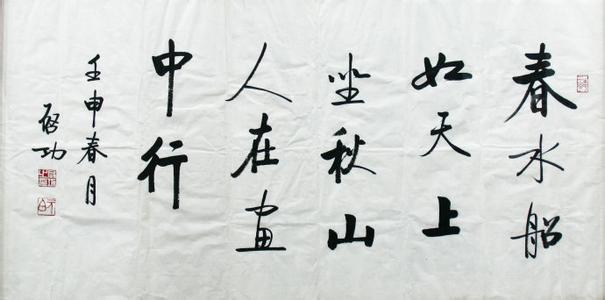 春水船
如天上
坐秋山
人在画
中行
壬申春月
启功